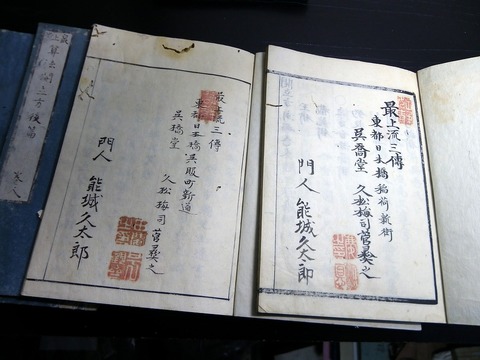 最上流三傳
東都日本橋稲荷新街
呉喬堂 久松梅司菅彛之
門人 能城久太郎
最上流三傳
東都日本橋呉服町新道
呉橋堂
久松梅司菅彛之
門人 能城久太郎